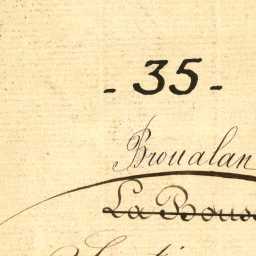 - 35 -
Broualan
La Bous